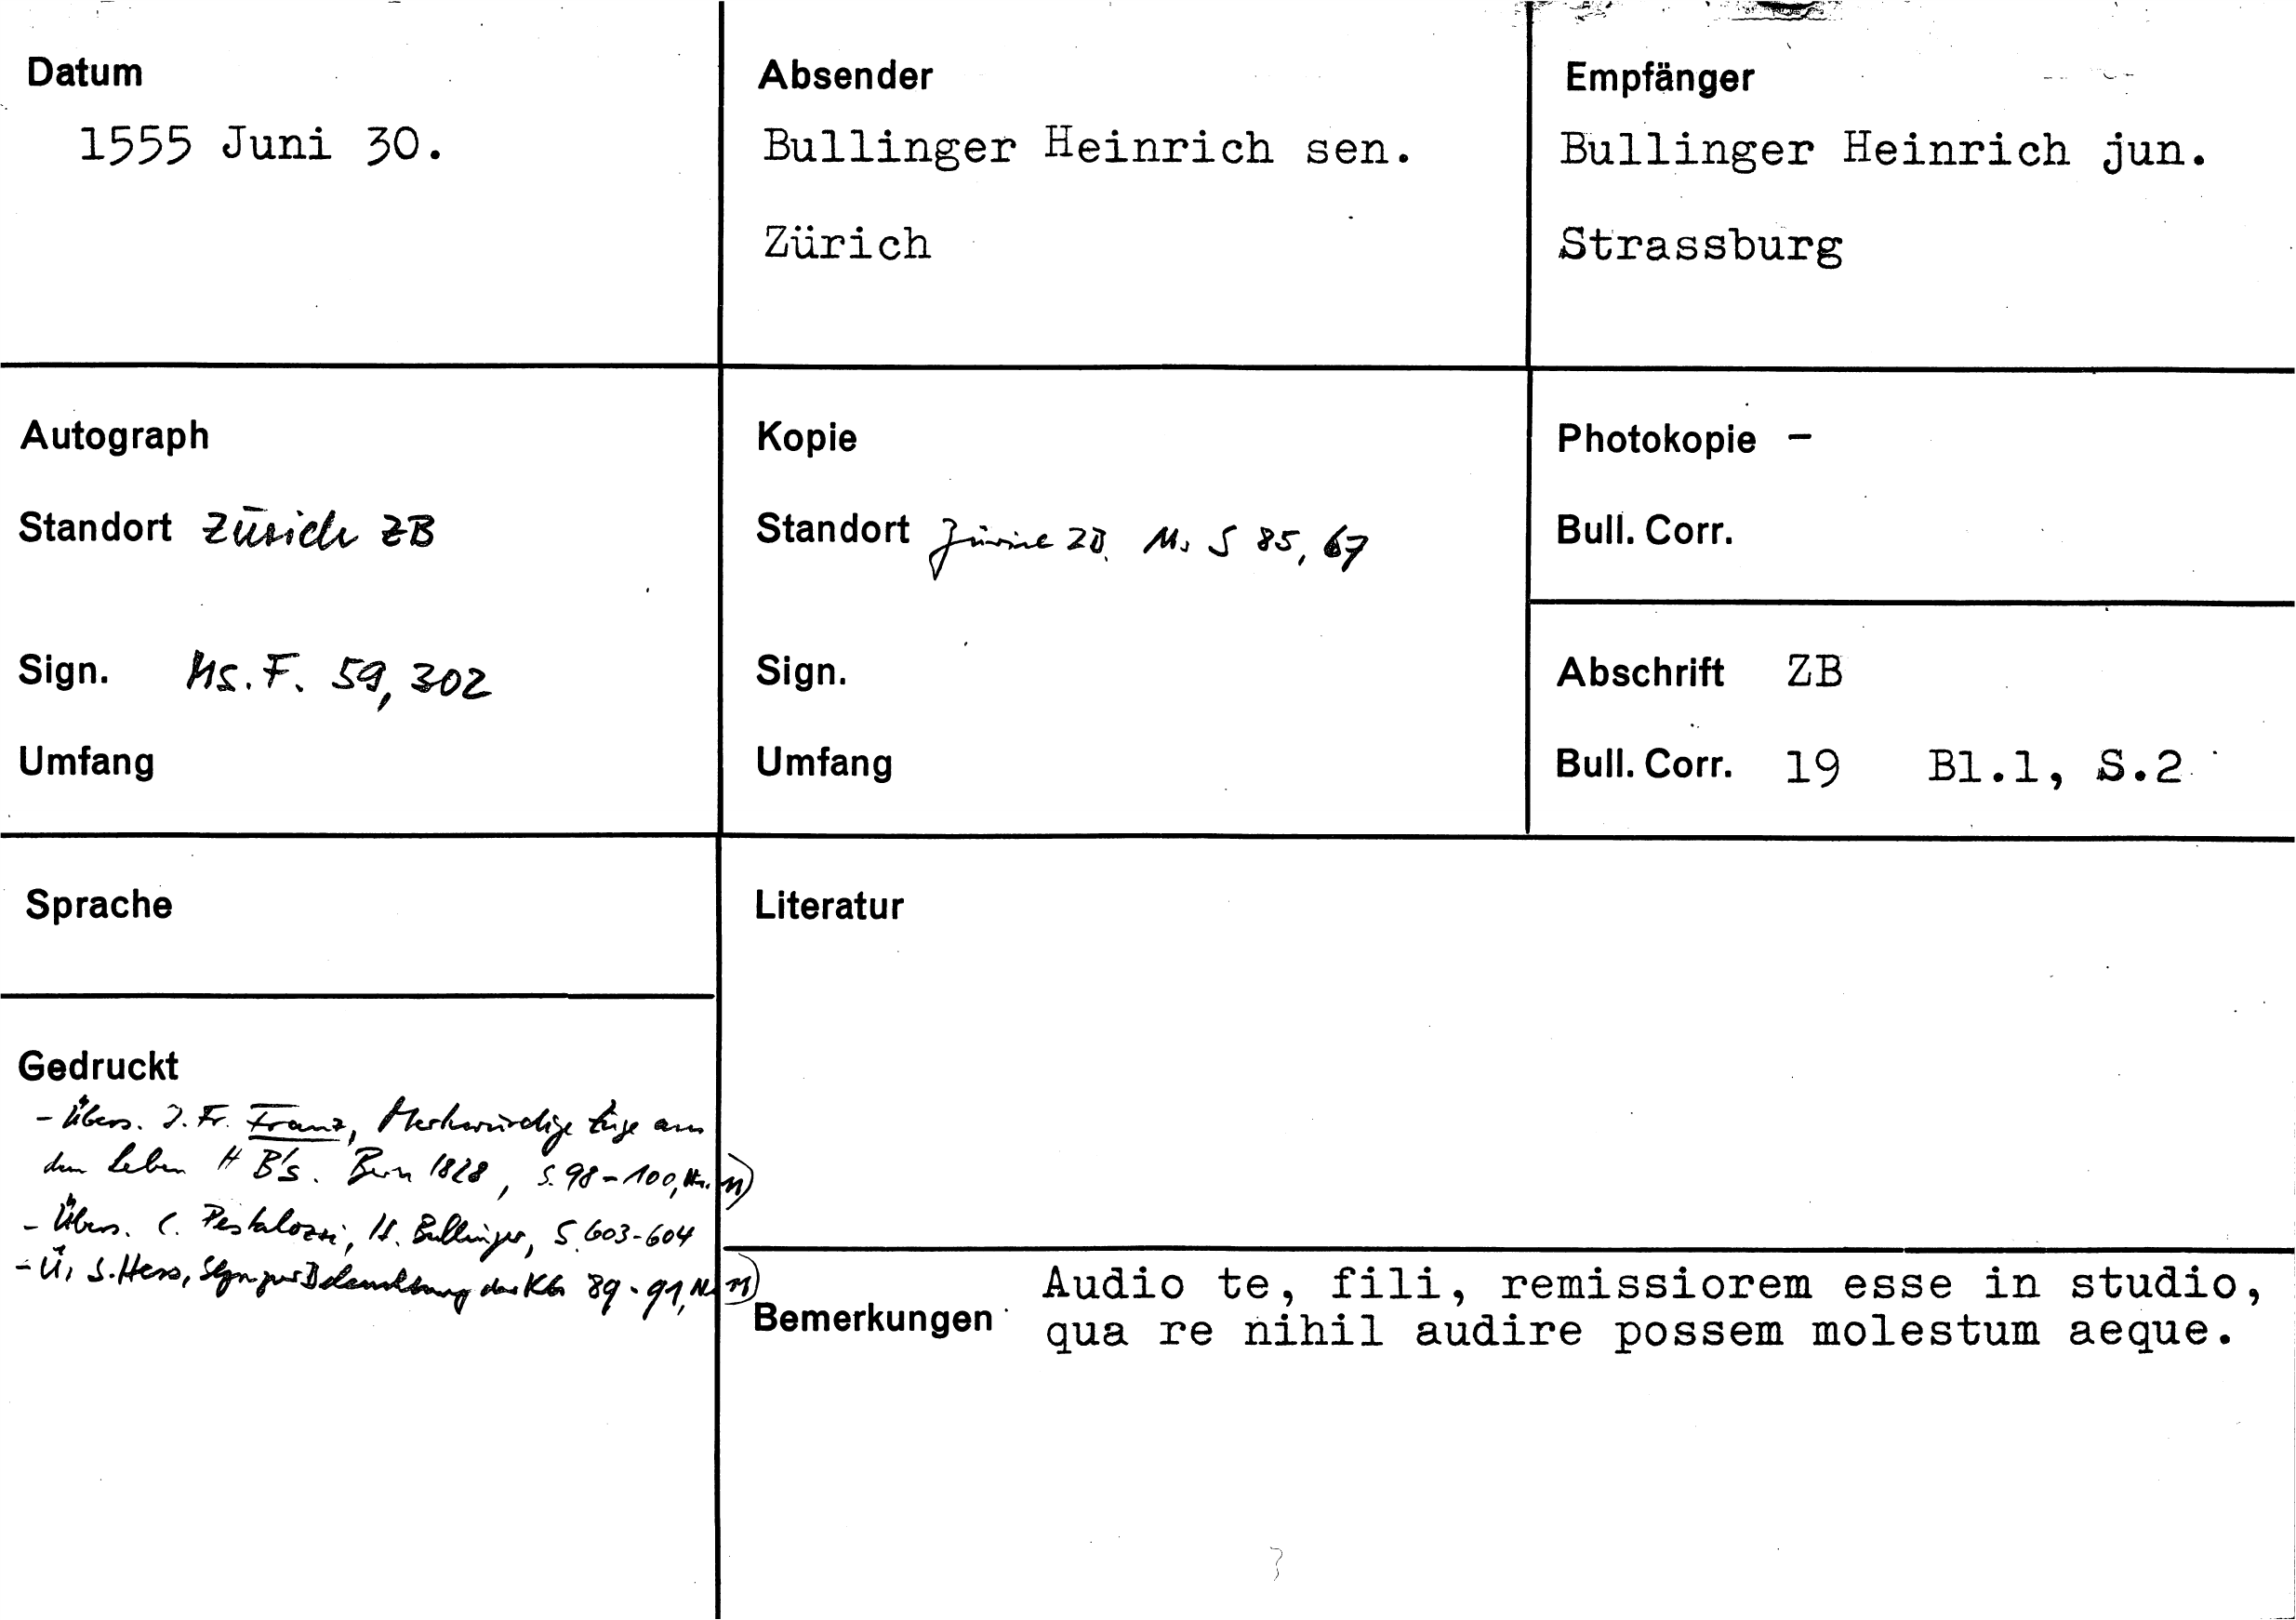 Datum
1555 Juni 30.
Absender
Bullinger Heinrich sen.
Zürich
Empfänger
Bullinger Heinrich jun.
Strassburg
Autograph
Standort Zürich ZB
Sign. Ms. F. 59, 302
Umfang
Kopie
Standort Zürich ZB. Ms S 85, 67
Sign.
Umfang
Photokopie –
Bull. Corr.
Abschrift ZB
Bull. Corr. 19 Bl.1, S.2
Sprache
Gedruckt
- Übers. J. Fr. Franz, Merkwürdige Züge aus
dem Leben H B's. Bern 1828, S. 98-100, Nr. 11)
- Übers. C. Pestalozzi, H. Bullinger, S. 603-604
- Ü, S. Hess, 89-91, Nr. 11)
Literatur
Bemerkungen
Audio te, fili, remissiorem esse in studio,
qua re nihil audire possem molestum aeque.